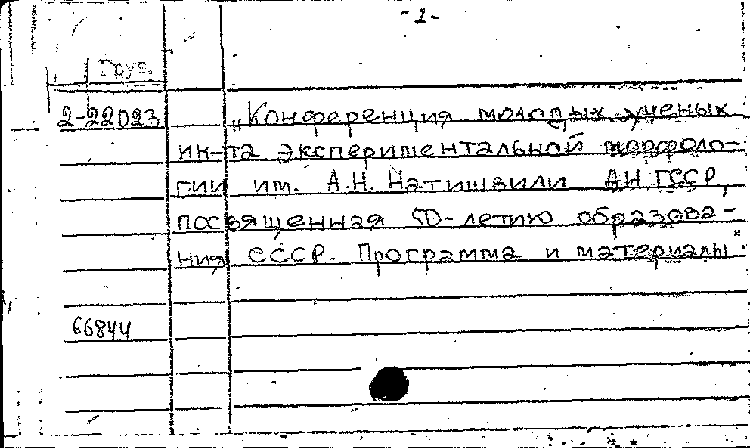 -2-
Груз.
2-22023 „Конференция молодых ученых
ин-та экспериментальной морфоло-
гии им. А.Н. Натишвили АН ГССР,
посвященная 50-летию образова-
ния СССР. Программа и материалы"
66844